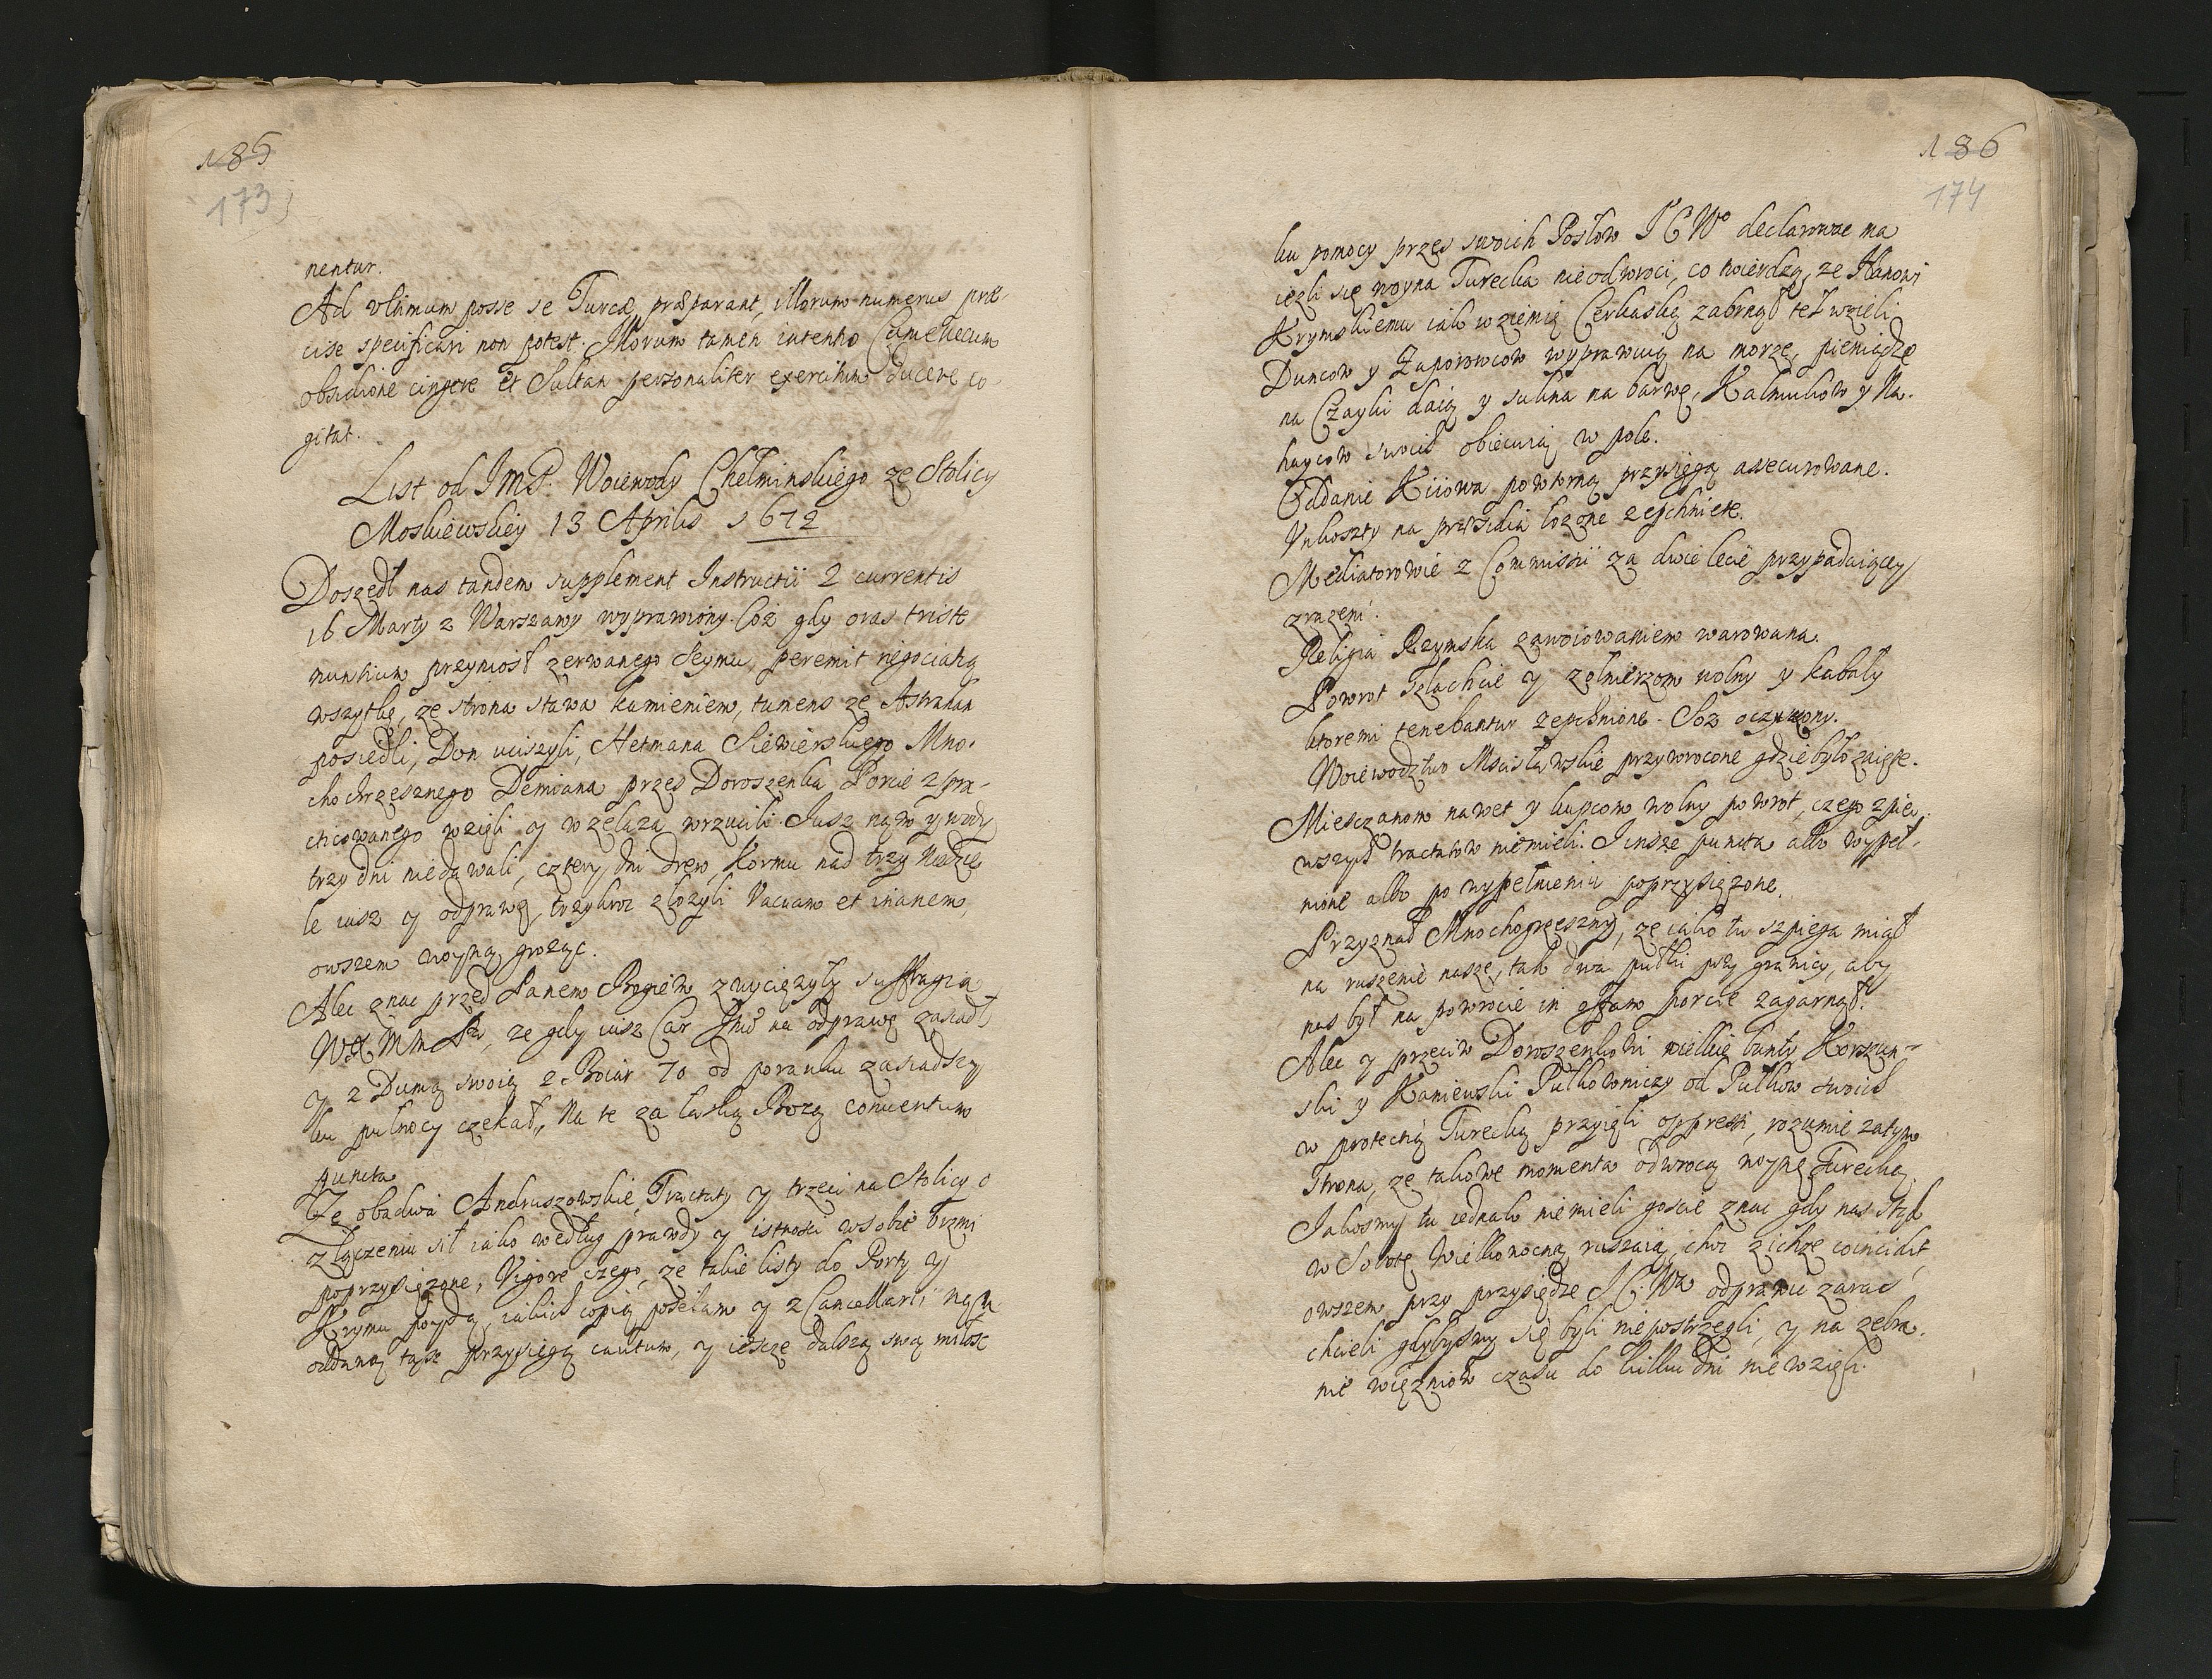 185
173
nentur.
Ad ultimum posse se Turcæ præparant, illorum numerus præ-
cise specificari non potest. Illorum tamen intentio Camenecum
obsidione cingere et Sultan personaliter exercitum ducere co-
gitat.
List od JmP. Woiewody Chełminskiego ze Stolicy
Moskiewskiey 13 Aprilis 1672
Doszedł nas tandem supplement Instructii 2 currentis
16 Marty z Warszawy wyprawiony. Coż gdy oras triste
nuntium przyniosł zerwanego Seymu, peremit negociatią
wszytkę, ze strona stawa kamieniem, tumens ze Astrahan
posiedli, Don uciszyli, Hetmana Siewierskiego Mno-
chochrzesznego Demiana przez Doroszenka Porcie zpra-
cticowanego wzięli y w zelaza wrzucili. Jusz nam y wody
trzy dni niedawali, cztery dni drew, Kormu nad trzy Niedzie
le iusz y odprawę trzykroc złozyli Vacuam et inanem,
owszem woyną grożąc.
Alec znac przed Panem Bogiem zwyciężyły suffragia
WX Mm Pa, ze gdy iusz Car Jmć na odprawę zasiadł
y z Dumą swoią z Boiar 70 od poranku zasiadszy
ku pułnocy czekał, Na te za łaską Bozą conventum
puncta
Ze obadwa Andruszowskie Tractaty y trzeci na Stolicy o
złączeniu sił iako według prawdy y istnosci w sobie brzmi
poprzysiężone, Vigore czego, ze takie listy do Porty y
Krymu poydą, iakich copią posełam y z Cancellarii nam
oddaną tąsz przysięgą cautum, y ieszcze dalszą swą miłość
186
174
ku pomocy przez swoich Posłow J C Wo declarowae ma
iezli się woyna Turecka nieodwroci, co twierdzą, ze Hanowi
Krymskiemu iako w ziemię Cerkaską zabrnął teł wzieli
Duncow y Zaporowcow wyprawuią na morze, pieniądze
na Czayki daią y sukna na barwę, Kalmukow y Na-
haycow swoich obiecuią w pole.
Oddanie Kiiowa powtorną przysięgą assecurowane.
Unkoszty na præsidia łozone zepchniete.
Mediatorowie z Commissii za dwie lecie przypadaiącey
zrazeni.
Religia Rzymska zawoiowaniem warowana.
Powrot szlachcie y zołnierzom wolny y kabały
ktoremi tenebantur zepchnione. Soz oczyszony.
Woiewodztwo Mscisławskie przywrocone gdzie było zaięte.
Miesczanom nawet y kupcom wolny powrot, czego z pier-
wszych tractatow niemieli. Jnsze puncta albo wypeł-
nione albo po wypełnieniu poprzysiężone.
Przyznał Mnochogrzeszny, ze iako tu szpiega miał
na ruszenie nasze, tak dwa pułki przy granicy, aby
nas był na powrocie in offam porcie zagarnął.
Alec y przeciw Doroszenkowi wielkie bunty Korszun-
ski y Kaniewski Pułkownicy od Pułkow swoich
w protectią Turecką przyięli oppressi, rozumie zatym
Strona, ze takowe momenta odwrocą woynę Turecką
Jakosmy tu iednak niemieli goscie znac gdy nas stąd
w Sobotę Wielkonocną ruszaią, choc z ichże coincidit,
owszem przy przysiędze J C Wa odprawie zaraz
chcieli gdybysmy się byli niepostrzegli, y na zebra-
nie więzniow czasu do kilku dni nie wzięli.